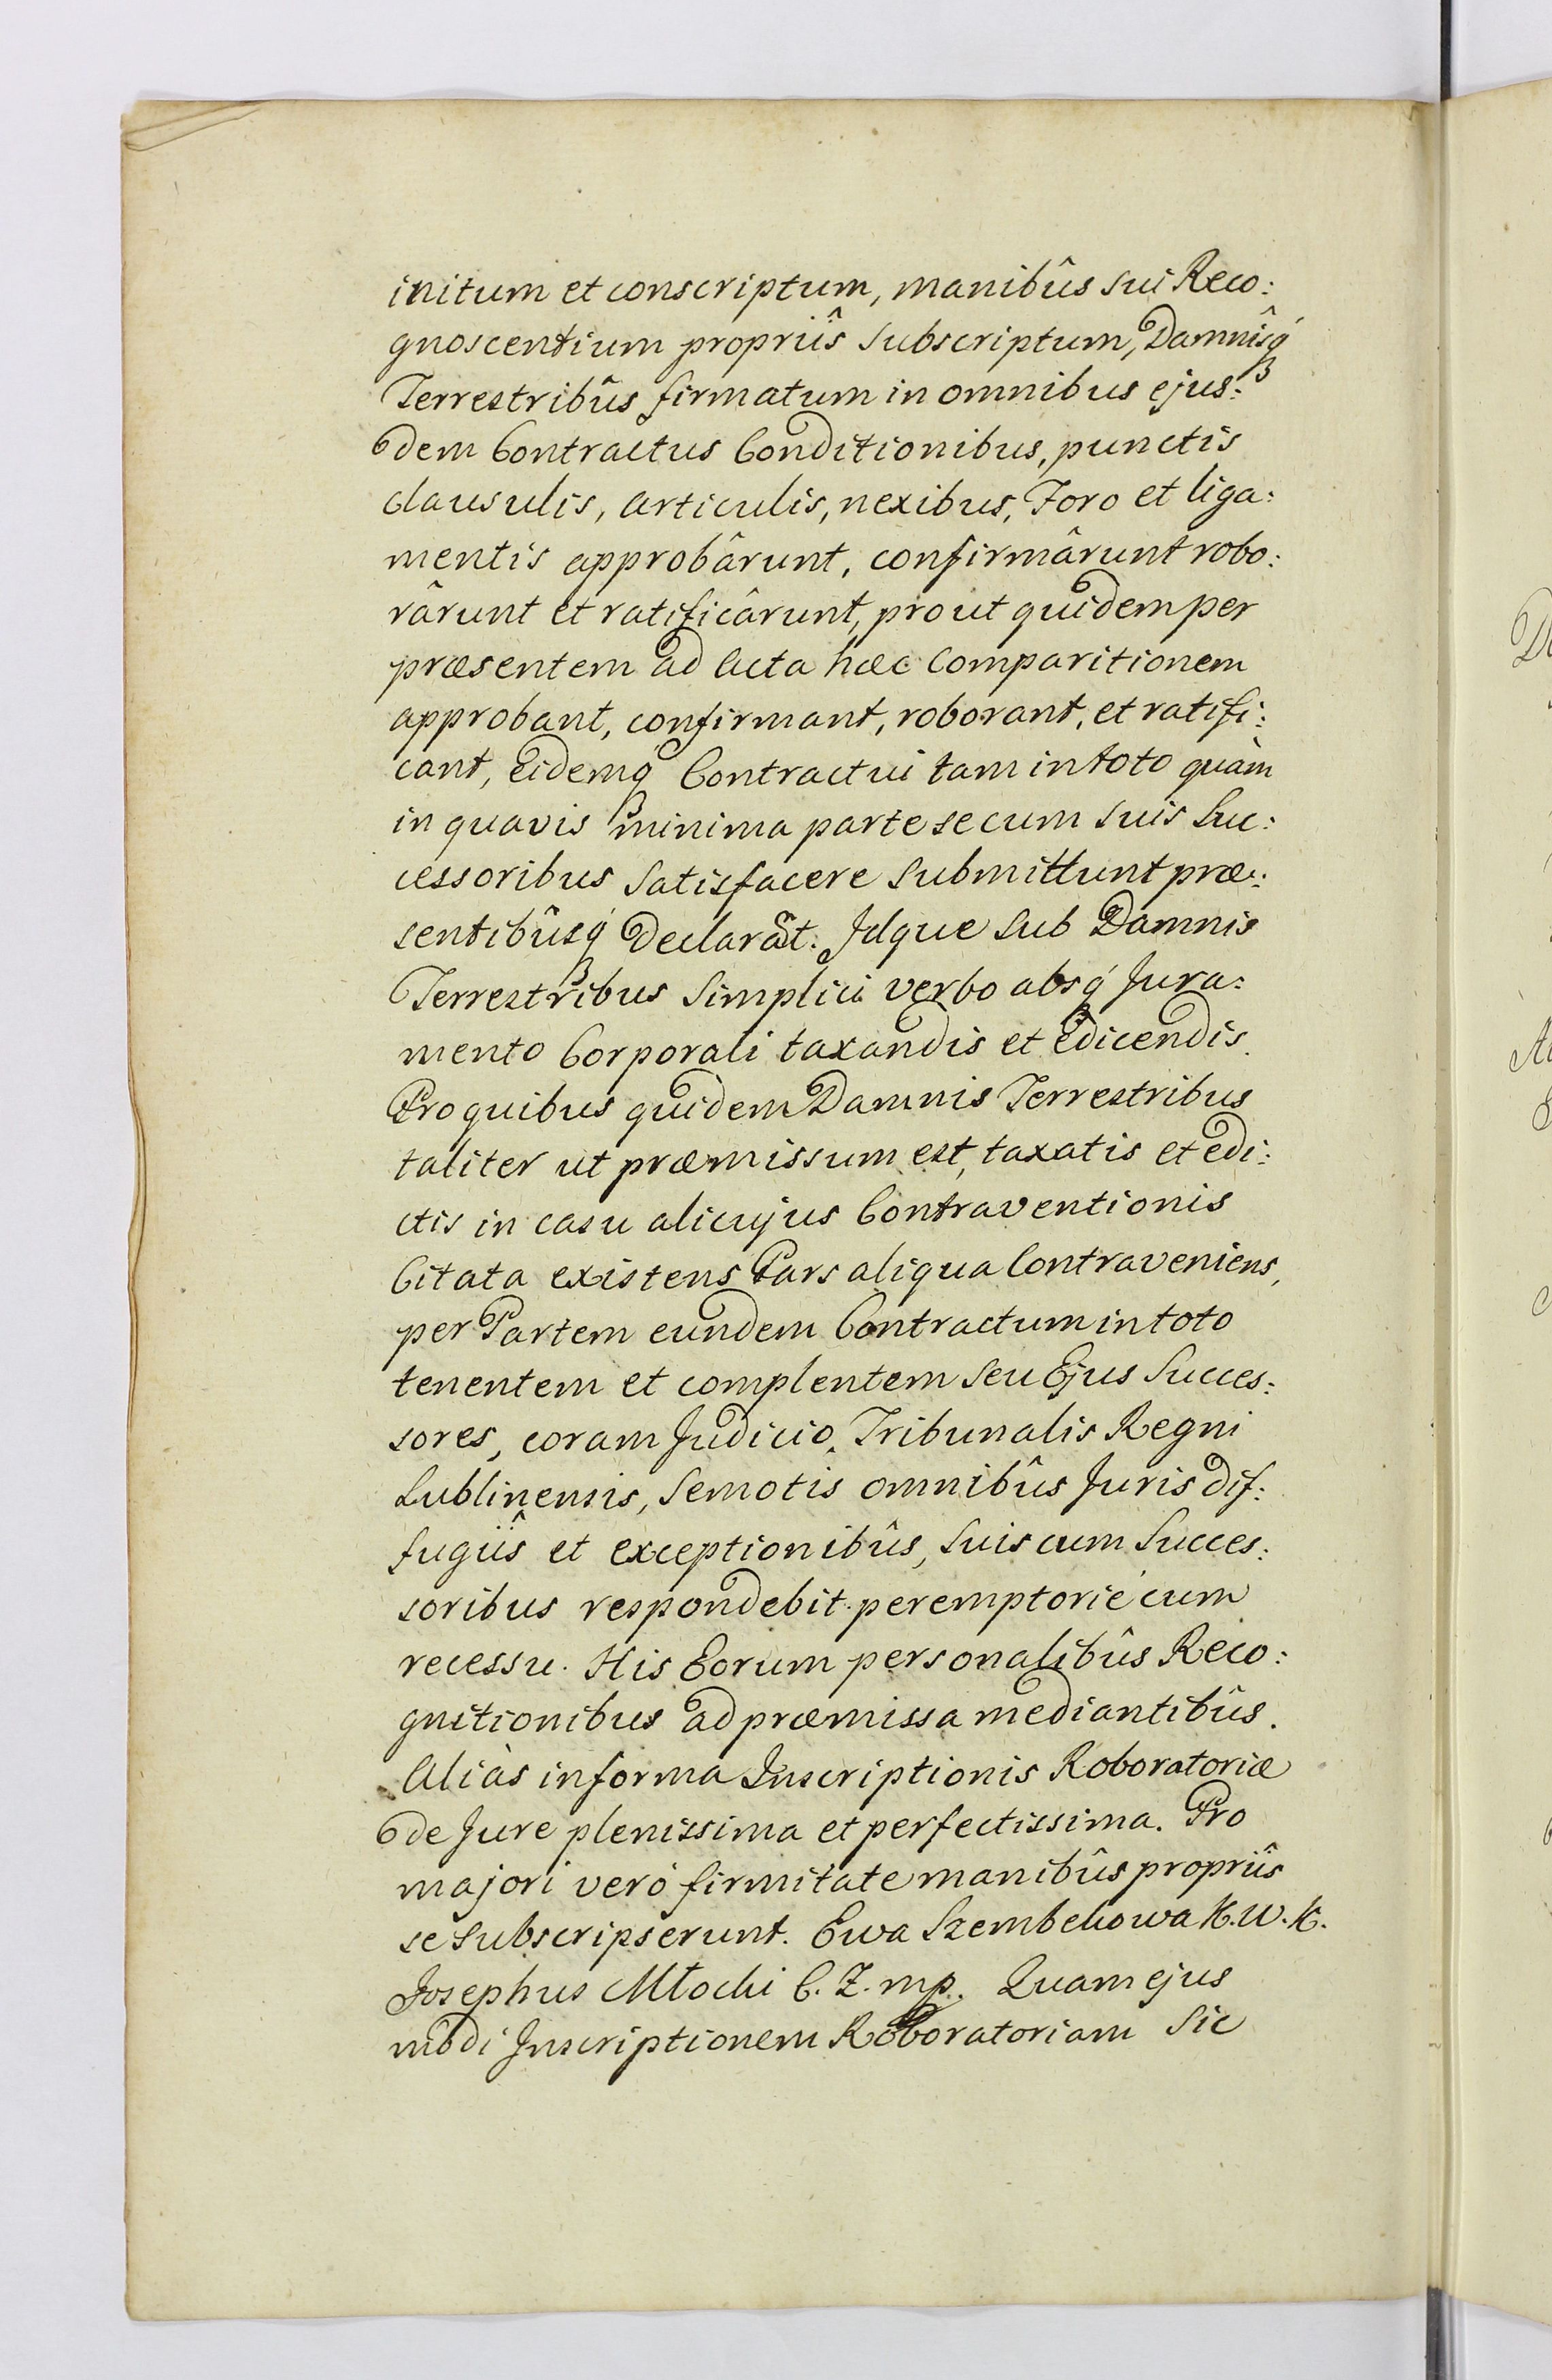 initum et conscriptum, manibûs sui Reco:
gnoscentium propriis̃ subscriptum, Damnîsq́
Terrestribûs firmatum in omnibus ejus:
dem Contractus Conditionibus, punctis
clausulis, articulis, nexibus, Foro et liga:
mentis approbârunt, confirmârunt robo:
rârunt et ratificârunt, prout quidem per
præsentem ad Acta hæc Comparitionem
approbant, confirmant, roborant, et ratifi:
cant, Eidemq́ Contractui tam in toto quàm
in quavis minima parte se cum suis Suc:
cessoribus satisfacere submittunt præ:
sentibûsq́ Declarãt. Idque sub Damnis
Terrestribus simplici verbo absq́ Jura:
mento Corporali taxandis et edicendis.
Pro quibus quidem Damnis Terrestribus
taliter ut præmissum est, taxatis et edi:
ctis in casu alicujus Contraventionis
Citata existens Pars aliqua Contraveniens,
per Partem eundem Contractum in toto
tenentem et complentem seu Ejus Succes:
sores, coram Judicio Tribunalis Regni
Lublinensis, semotis omnibûs Juris dif:
fugiîs et exceptionibûs, suis cum Succes:
soribus respondebit peremptoriè cum
recessu. His Eorum personalibûs Reco:
gnitionibus ad præmissa mediantibûs.
Aliàs in forma Inscriptionis Roboratoriæ
de Jure plenissima et perfectissima. Pro
majori verò firmitate manibûs propriîs
se subscripserunt. Ewa Szembekowa K. W. K.
Josephus Młocki C. Z. mp. Quam ejus
modi Inscriptionem Roboratoriam sic